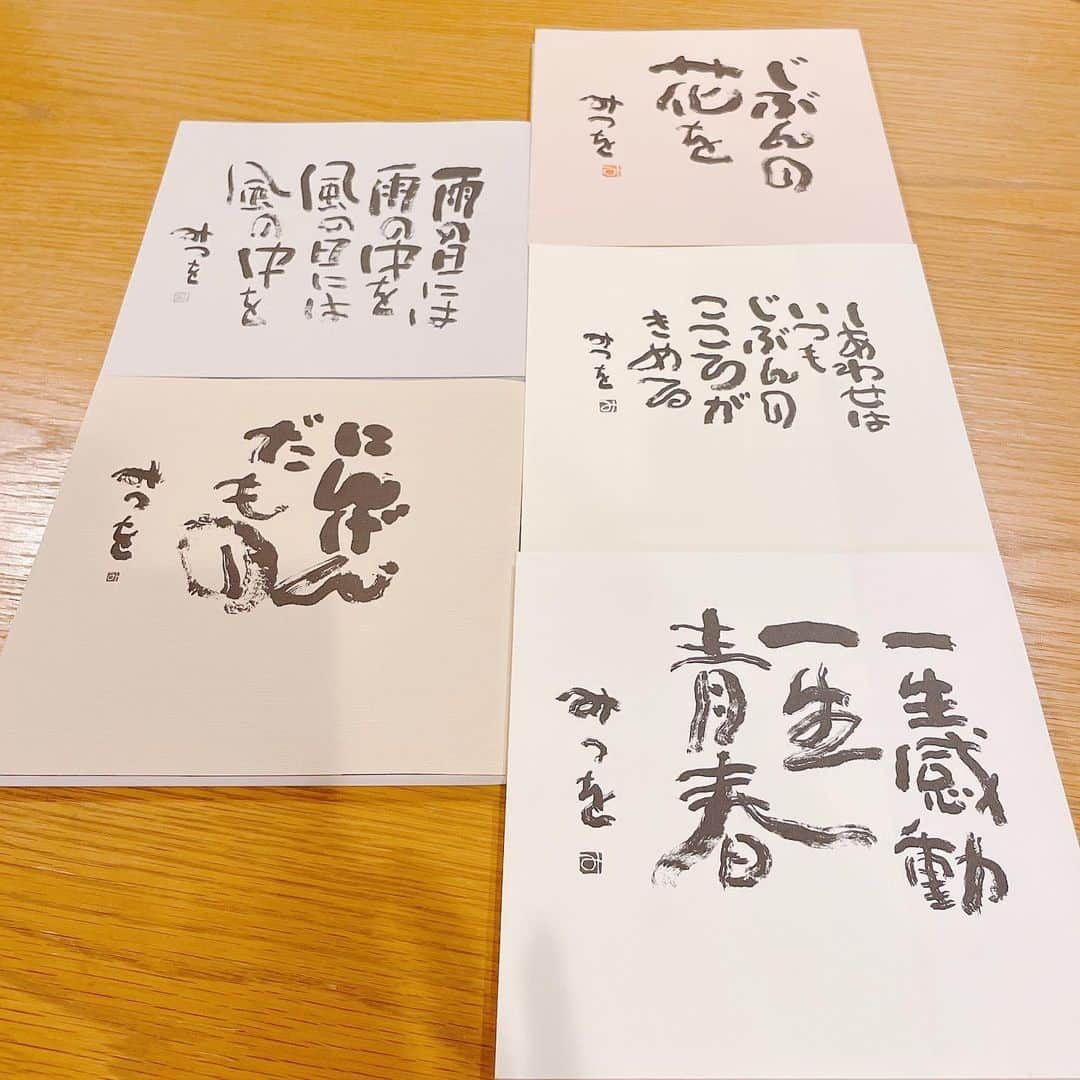 じぶんの
花を
みつを
しあわせは
いつも
じぶんの
こころが
きめる
みつを
一生感動
一生
青春
みつを
雨の日には
雨の中を
風の日には
風の中を
みつを
にんげん
だ
もの
みつを